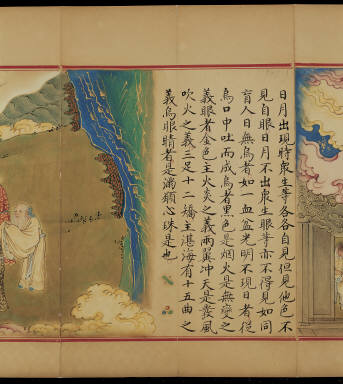 日月出現時衆生等各各自見但見他色不
見自眼日月不出衆生眼等亦不得見如同
盲人日無烏者如一血盆光明不現日者從
烏口中吐而成烏者黑色是烟火是無變之
義眼者金色主火炎之義兩翼冲天是發風
吹火之義三足十二主湛海有十五曲之
義烏眼睛者是滿願心珠是也